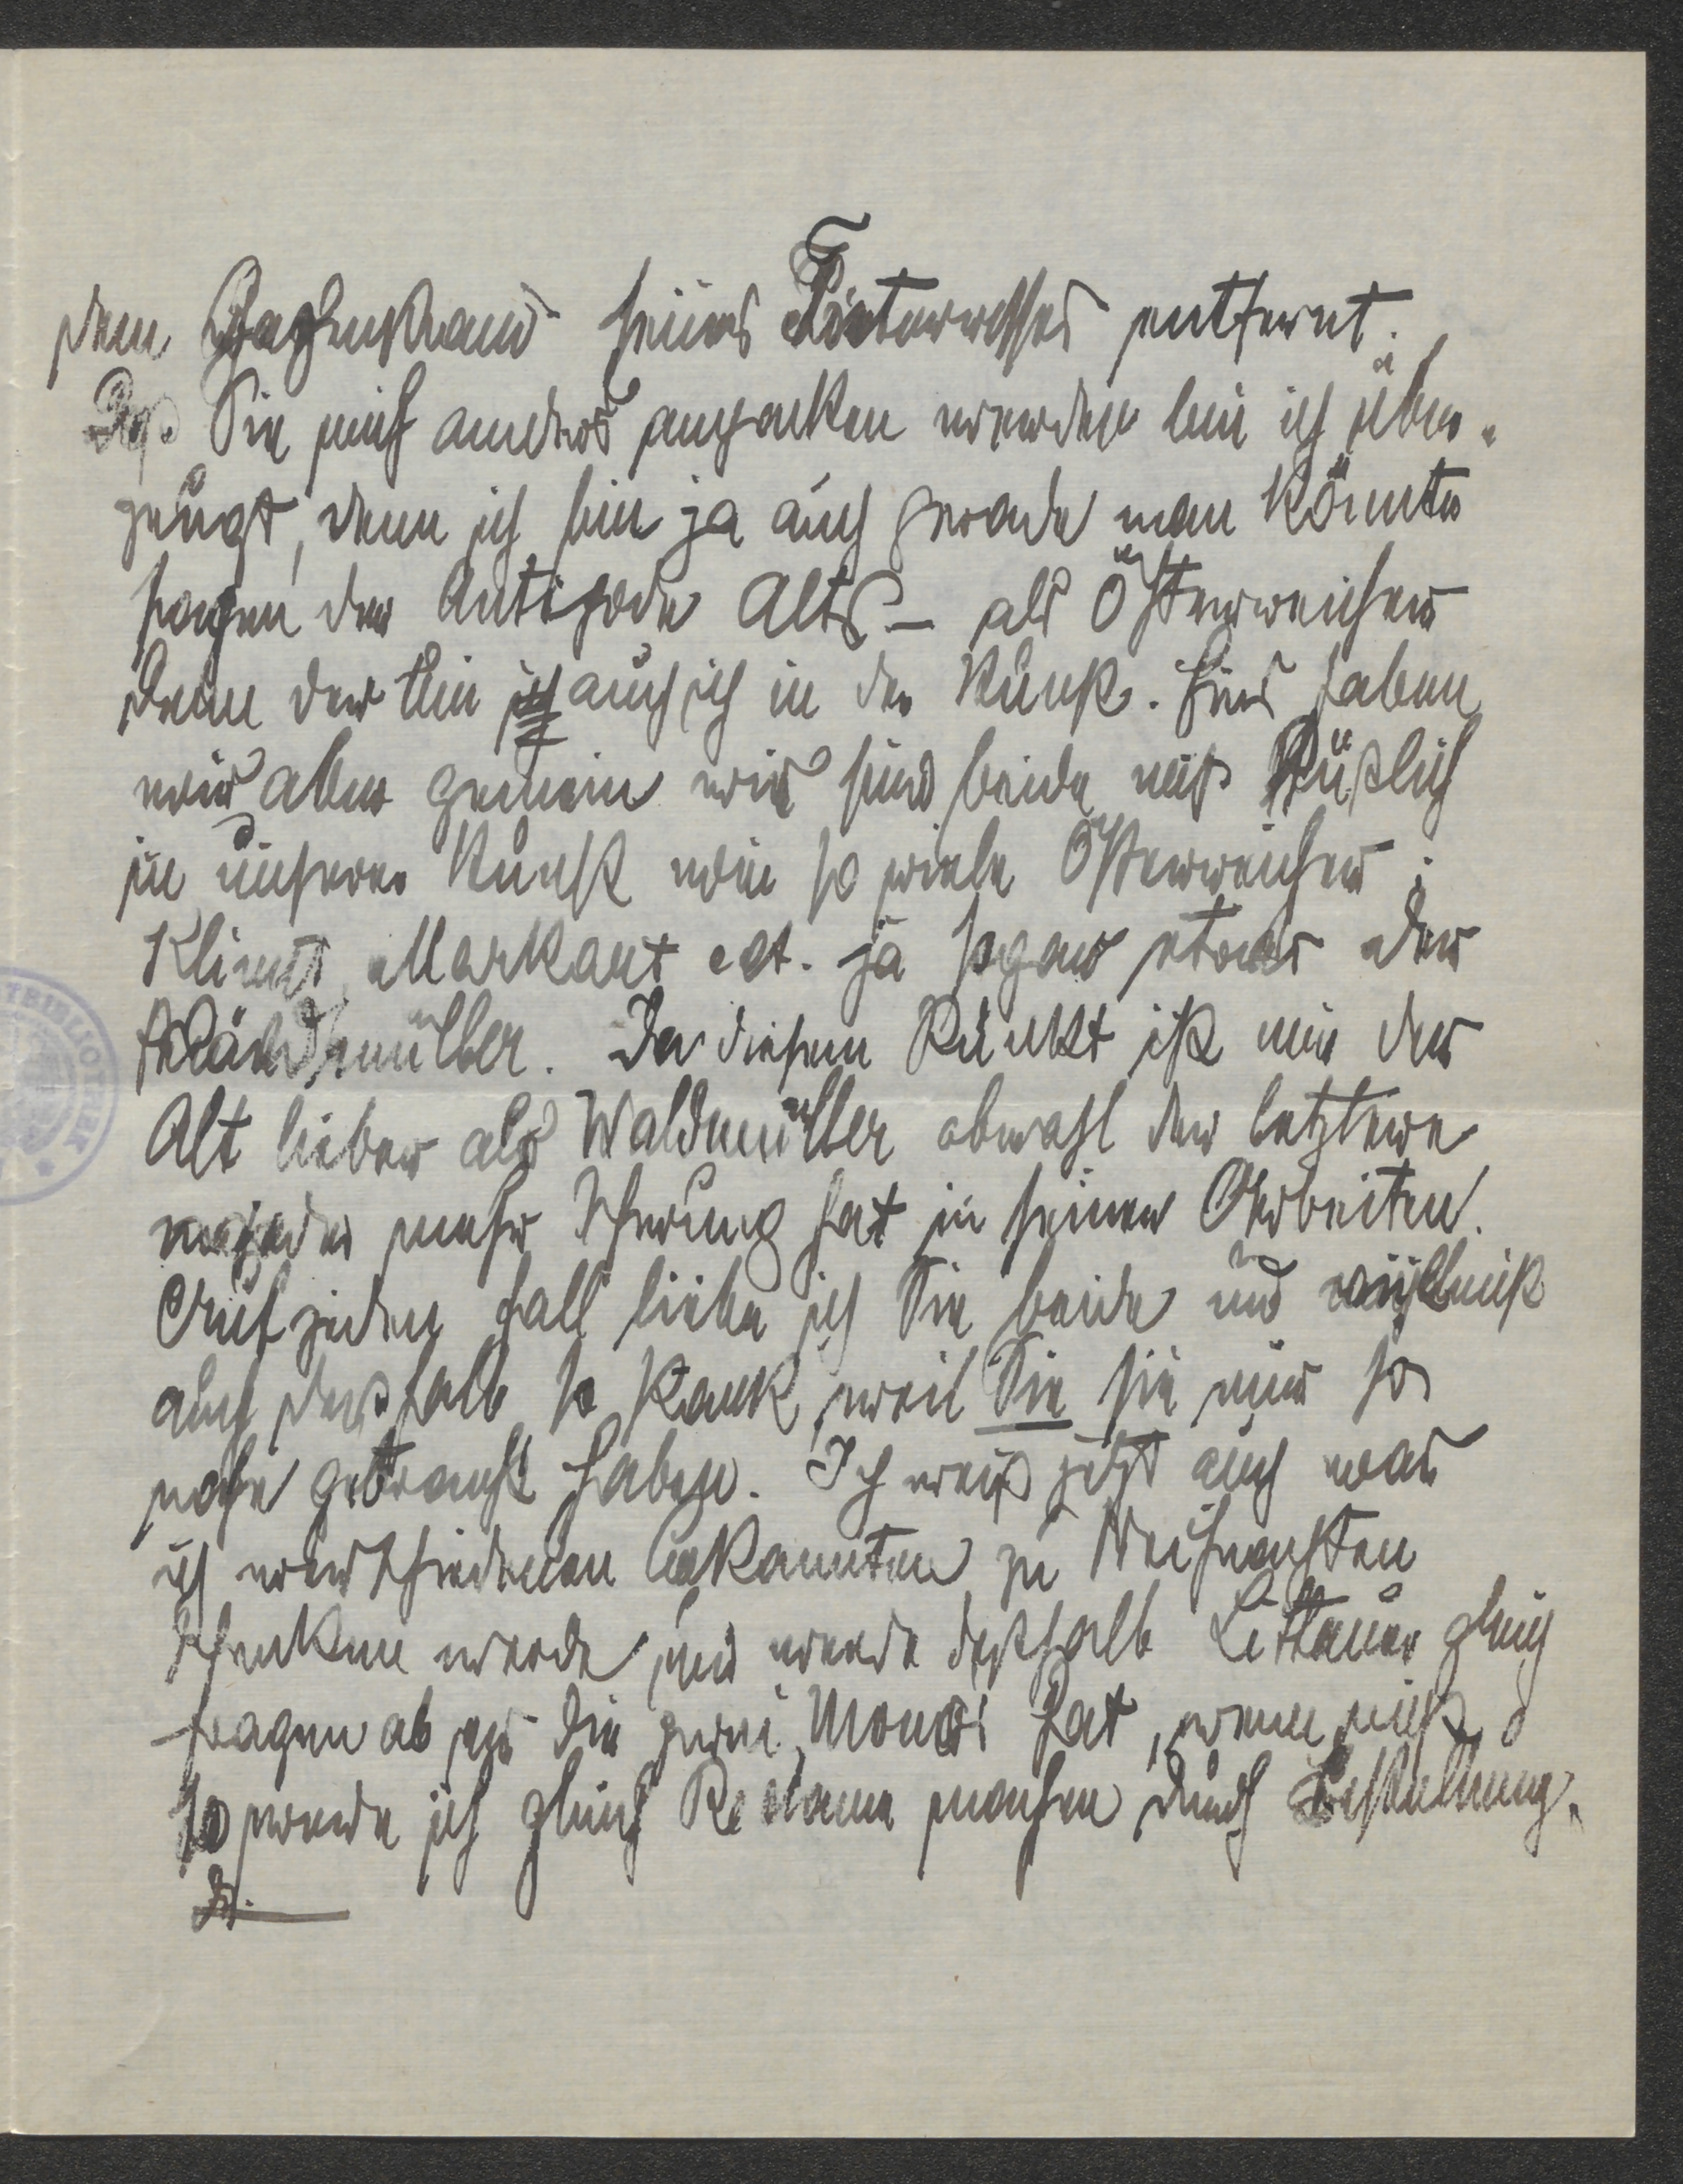 dem Gegenstand seines Interesses entfernt.
Daß Sie mich anders anpacken werden bin ich über-
zeugt, denn ich bin ja auch gerade man könnte
sagen der Antipode Alts – als Österreicher
denn der bin auch ich in der Kunst. Eins haben
wir aber gemein wir sind beide nicht süßlich
in unserer Kunst wie so viele Österreicher:
Klimt, Markart ect. ja sogar etwas der
Waldmüller. In diesem Punkt ist mir der
Alt lieber als Waldmüller obwohl der letztere
mehr Schwung hat in seinen Arbeiten.
Auf jeden Fall liebe ich Sie beide und vielleicht
auch deshalb so stark, weil Sie sie mir so
nahe gebracht haben. Ich weiß jetzt auch was
ich verschiedenen Bekannten zu Weihnachten
schenken werde und werde deshalb Littauer gleich
fragen ob er die zwei Monos hat, wenn nicht
so werde ich gleich Reclame machen durch Bestellung.